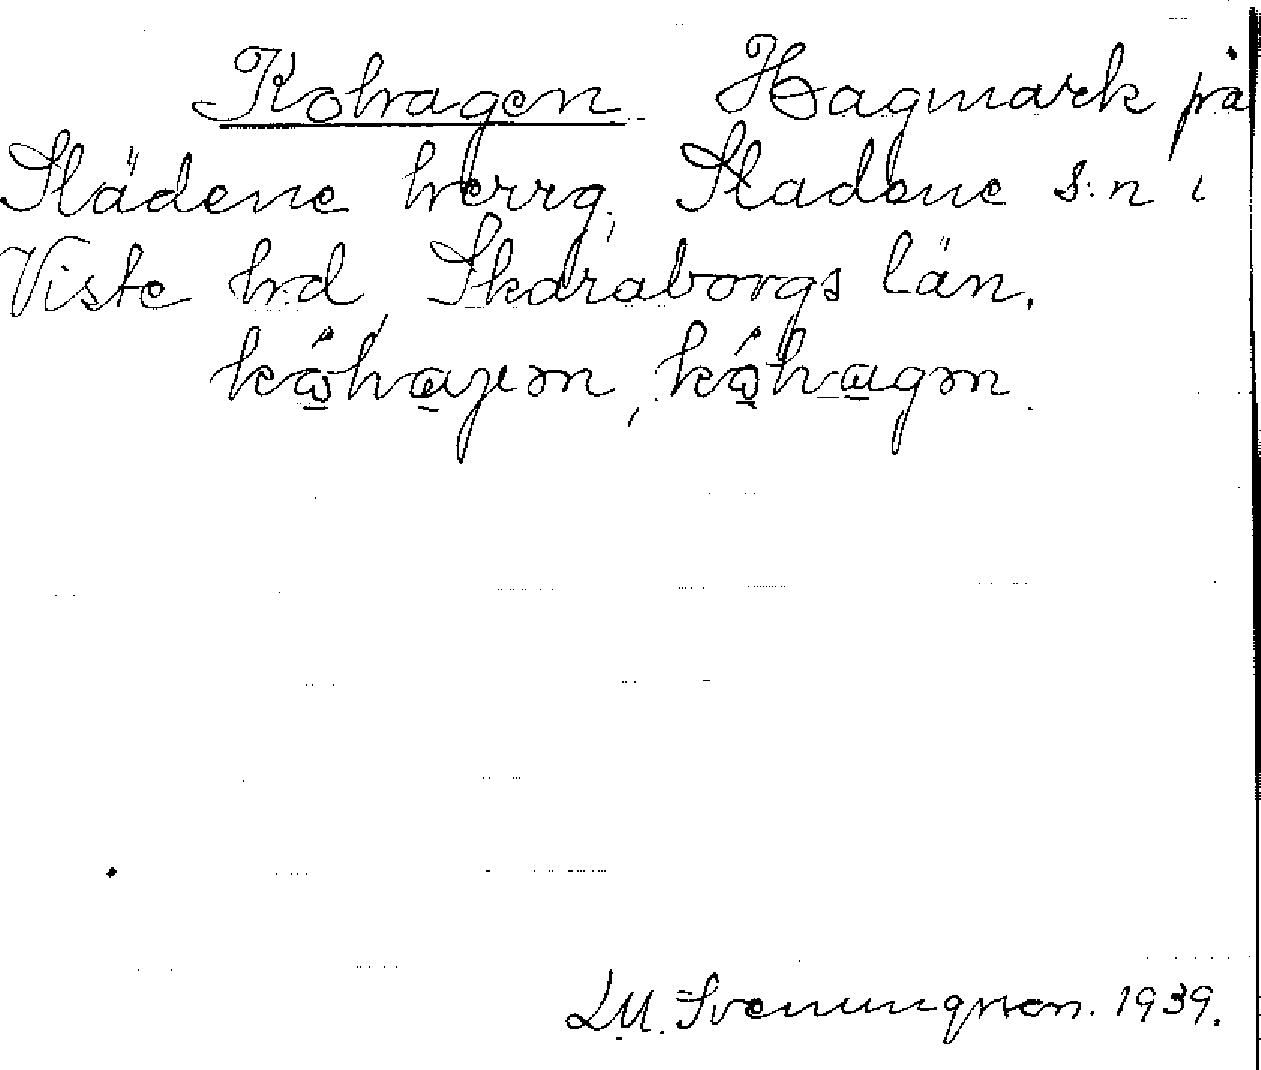 Kohagen Hagmark på
Slädene herrg, Sladene s:n i
Viste hd, Skaraborgs län.
kóhajen, kóhagen.
LM. Svenungsson. 1939.